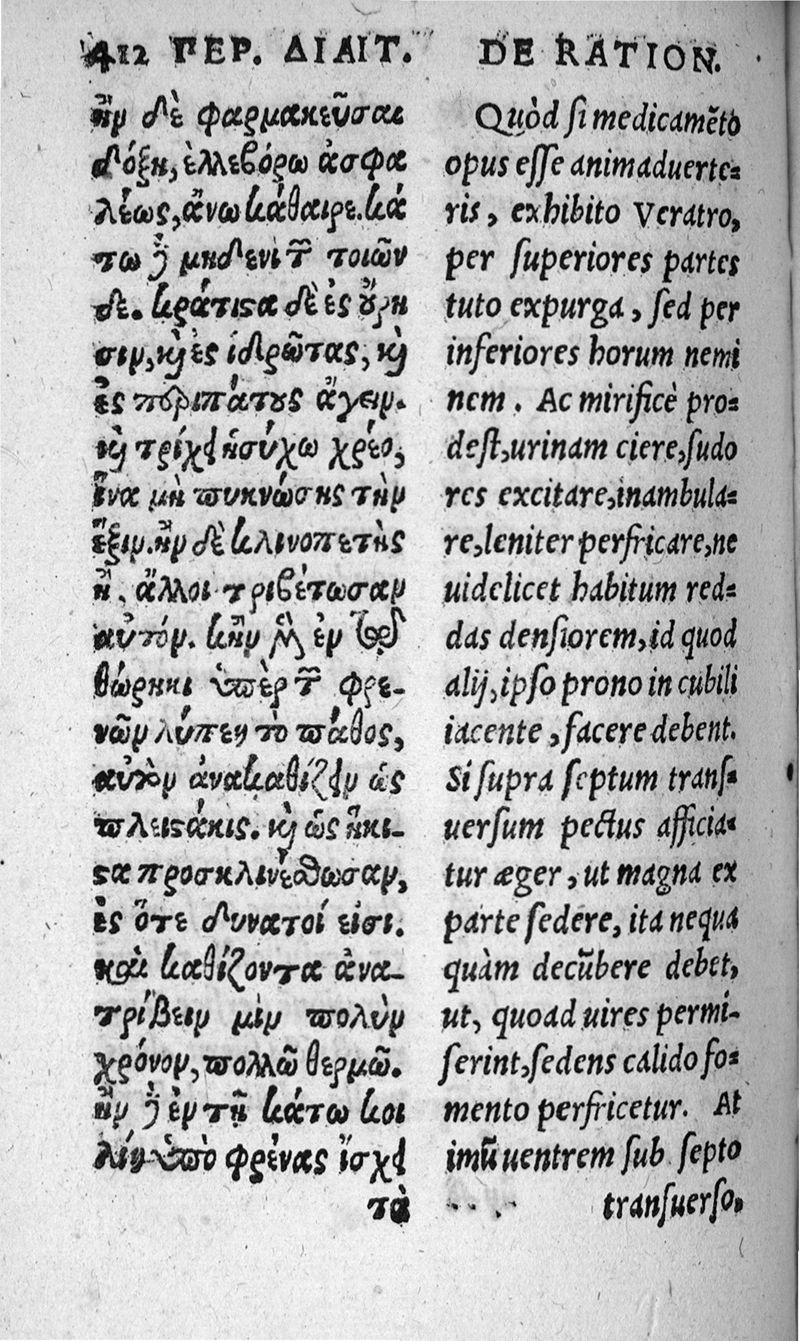 412 ΠΕΡ. ΔΙΑΙΤ.
ἢν δὲ φαρμακεῦσαι
δόξῃ, ἑλλεβόρῳ ἀσφα
λέως, ἄνω κάθαιρε. κά
τω δὲ μηδενὶ τῶν τοιῶν
δε. κράτιστα δὲ ἐς οὔρη
σιν, καὶ ἐς ἱδρῶτας, καὶ
ἐς περιπάτους ἄγειν.
καὶ τρίχει ἡσύχῳ χρέο,
ἵνα μὴ πυκνώσῃς τὴν
ἕξιν. ἢν δὲ κλινοπετὴς
ᾖ, ἄλλοι τριβέτωσαν
αὐτόν. κἢν μὲν ἐν τῷ
θώρηκι ὑπὲρ τῶν φρε-
νῶν λύπην τὸ πάθος,
αὐτὸν ἀνακαθίζειν ὡς
πλειστάκις. καὶ ὡς ἥκι-
στα προσκλινέσθωσαν,
ἐς ὅτε δυνατοί εἰσι.
καὶ καθίζοντα ἀνα-
τρίβειν μὶν πολὺν
χρόνον, πολλῷ θερμῷ.
ἢν δὲ ἐν τῇ κάτω κοι
λίῃ ὑπὸ φρένας ἴσχει
τὰ
DE RATION.
Quòd si medicamẽto
opus esse animaduerte-
ris, exhibito Veratro,
per superiores partes
tuto expurga, sed per
inferiores horum nemi
nem. Ac mirificè pro-
dest, urinam ciere, sudo
res excitare, inambula-
re, leniter perfricare, ne
uidelicet habitum red-
das densiorem, id quod
alij, ipso prono in cubili
iacente, facere debent.
Si supra septum trans-
uersum pectus afficia-
tur æger, ut magna ex
parte sedere, ita nequa
quàm decũbere debet,
ut, quoad uires permi-
serint, sedens calido fo-
mento perfricetur. At
imũ uentrem sub septo
transuerso,